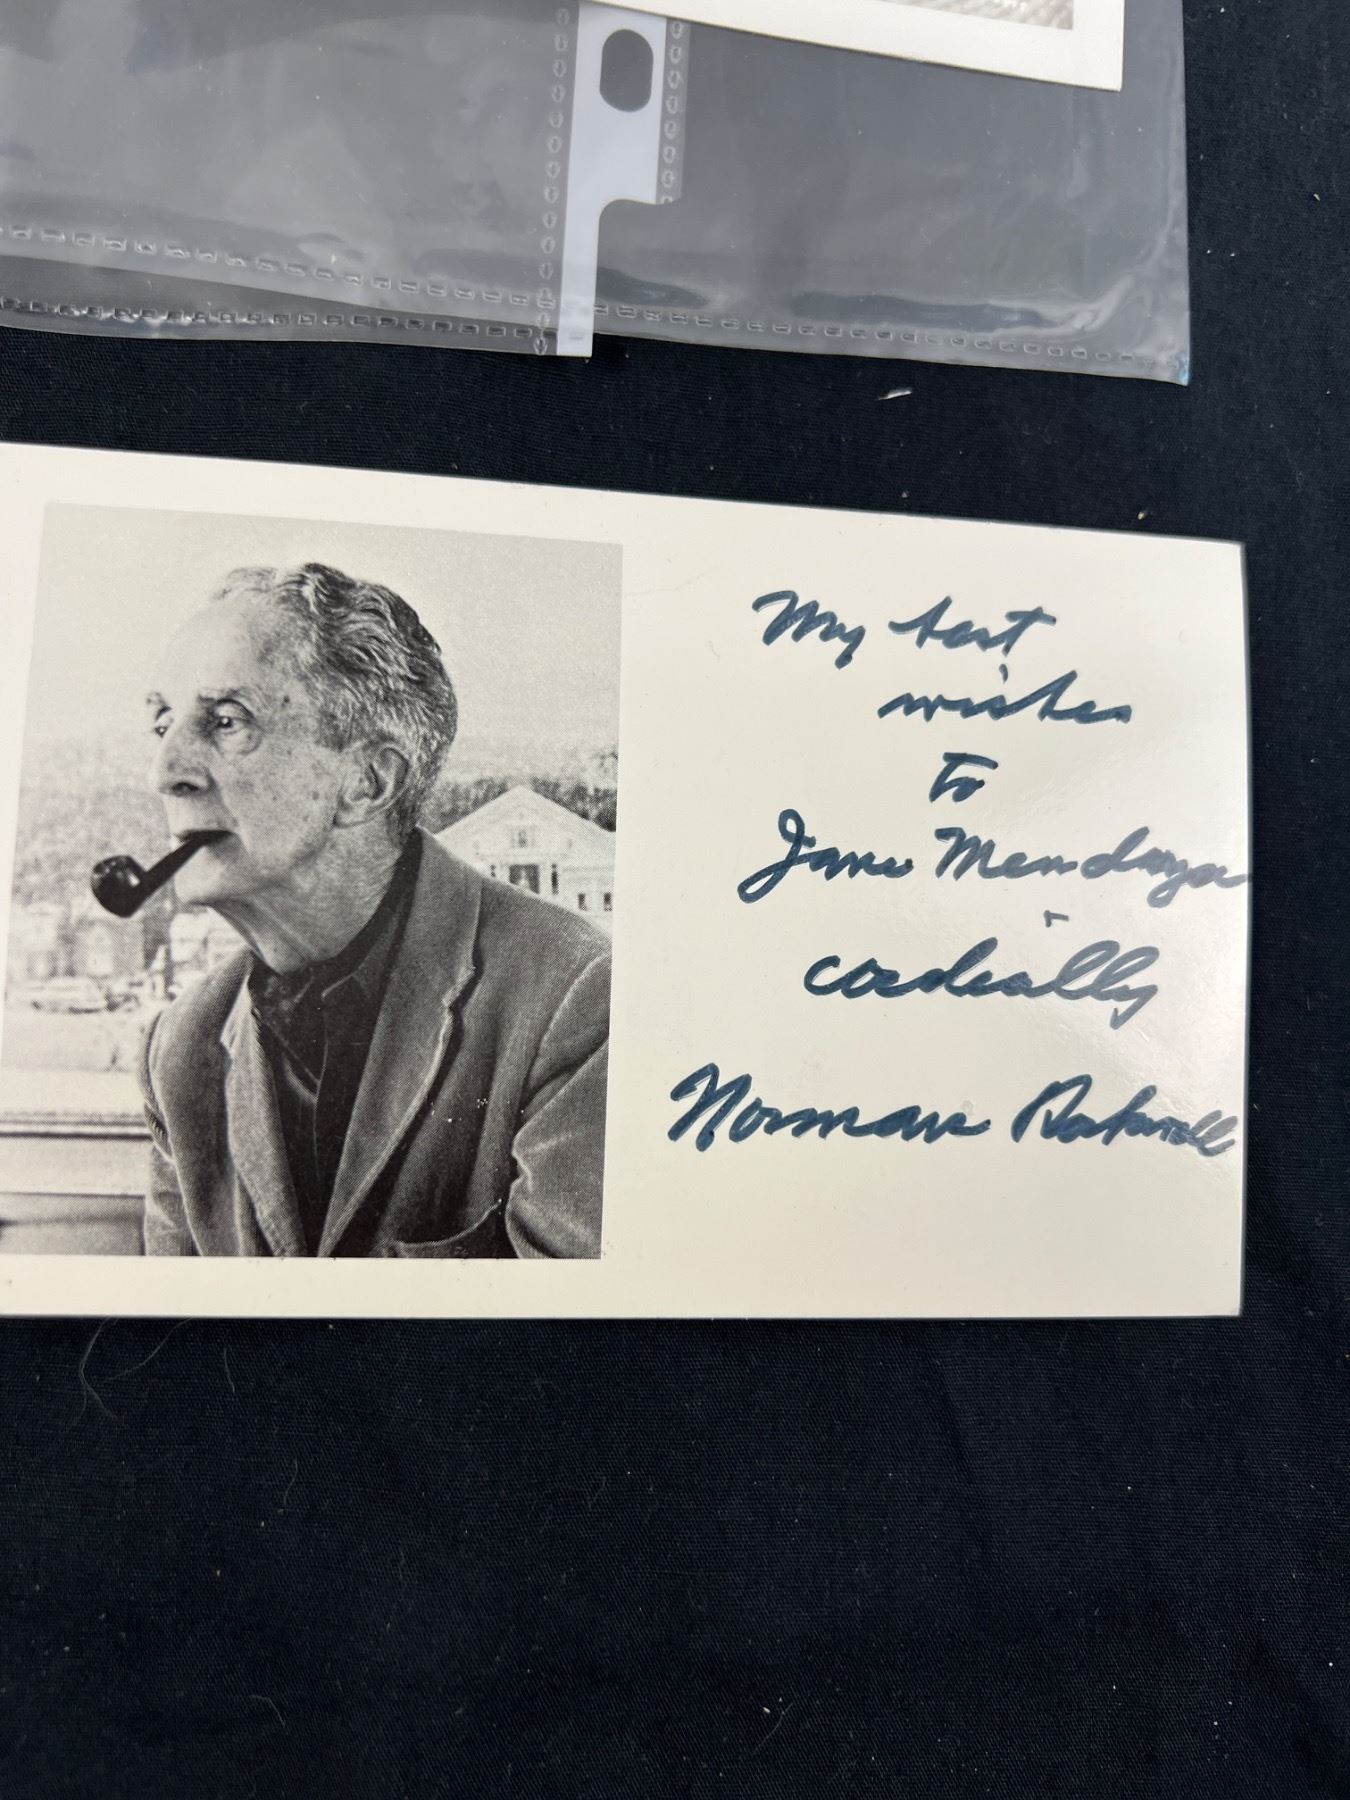 My best
wishes
to
Jane Mendoza
cordially
Norman Rockwell